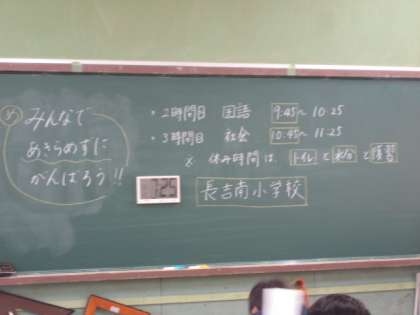 め
みんなで
あきらめずに
がんばろう!!
・2時間目 国語 9.45〜10.25
・3時間目 社会 10.45〜11.25
※ 休み時間は、トイレと水分と復習
長吉南小学校